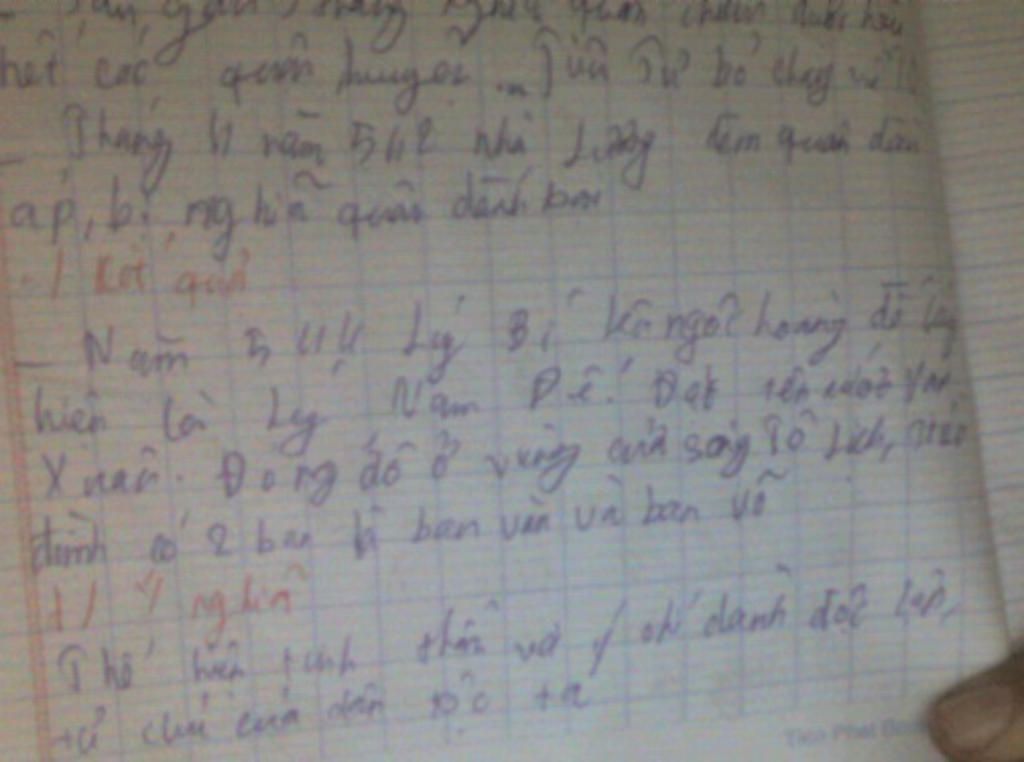 hết các quận huyện ... Tiêu Tư bỏ chạy về
- Tháng 4 năm 542 nhà Lương đem quân đàn
áp, bị nghĩa quân đánh bại
+/ Kết quả
- Năm 544 Lý Bí lên ngôi hoàng đế lấy
hiên là Lý Nam Đế. Đặt tên nước Vạn
Xuân. Đóng đô ở vùng cửa sông Tô Lịch,
đình có 2 ban là ban văn và ban võ
+/ Ý nghĩa
Thể hiện tinh thần và ý chí dành độc lập,
tự chủ của dân tộc ta
Tiến Phát